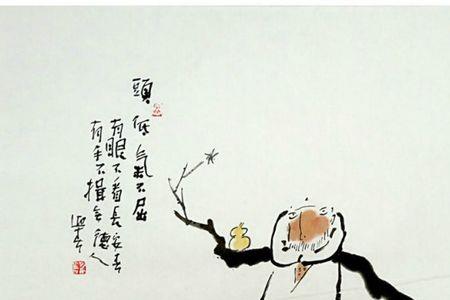 頭低氣不屈
有眼不看長安春
有手不揖無德人